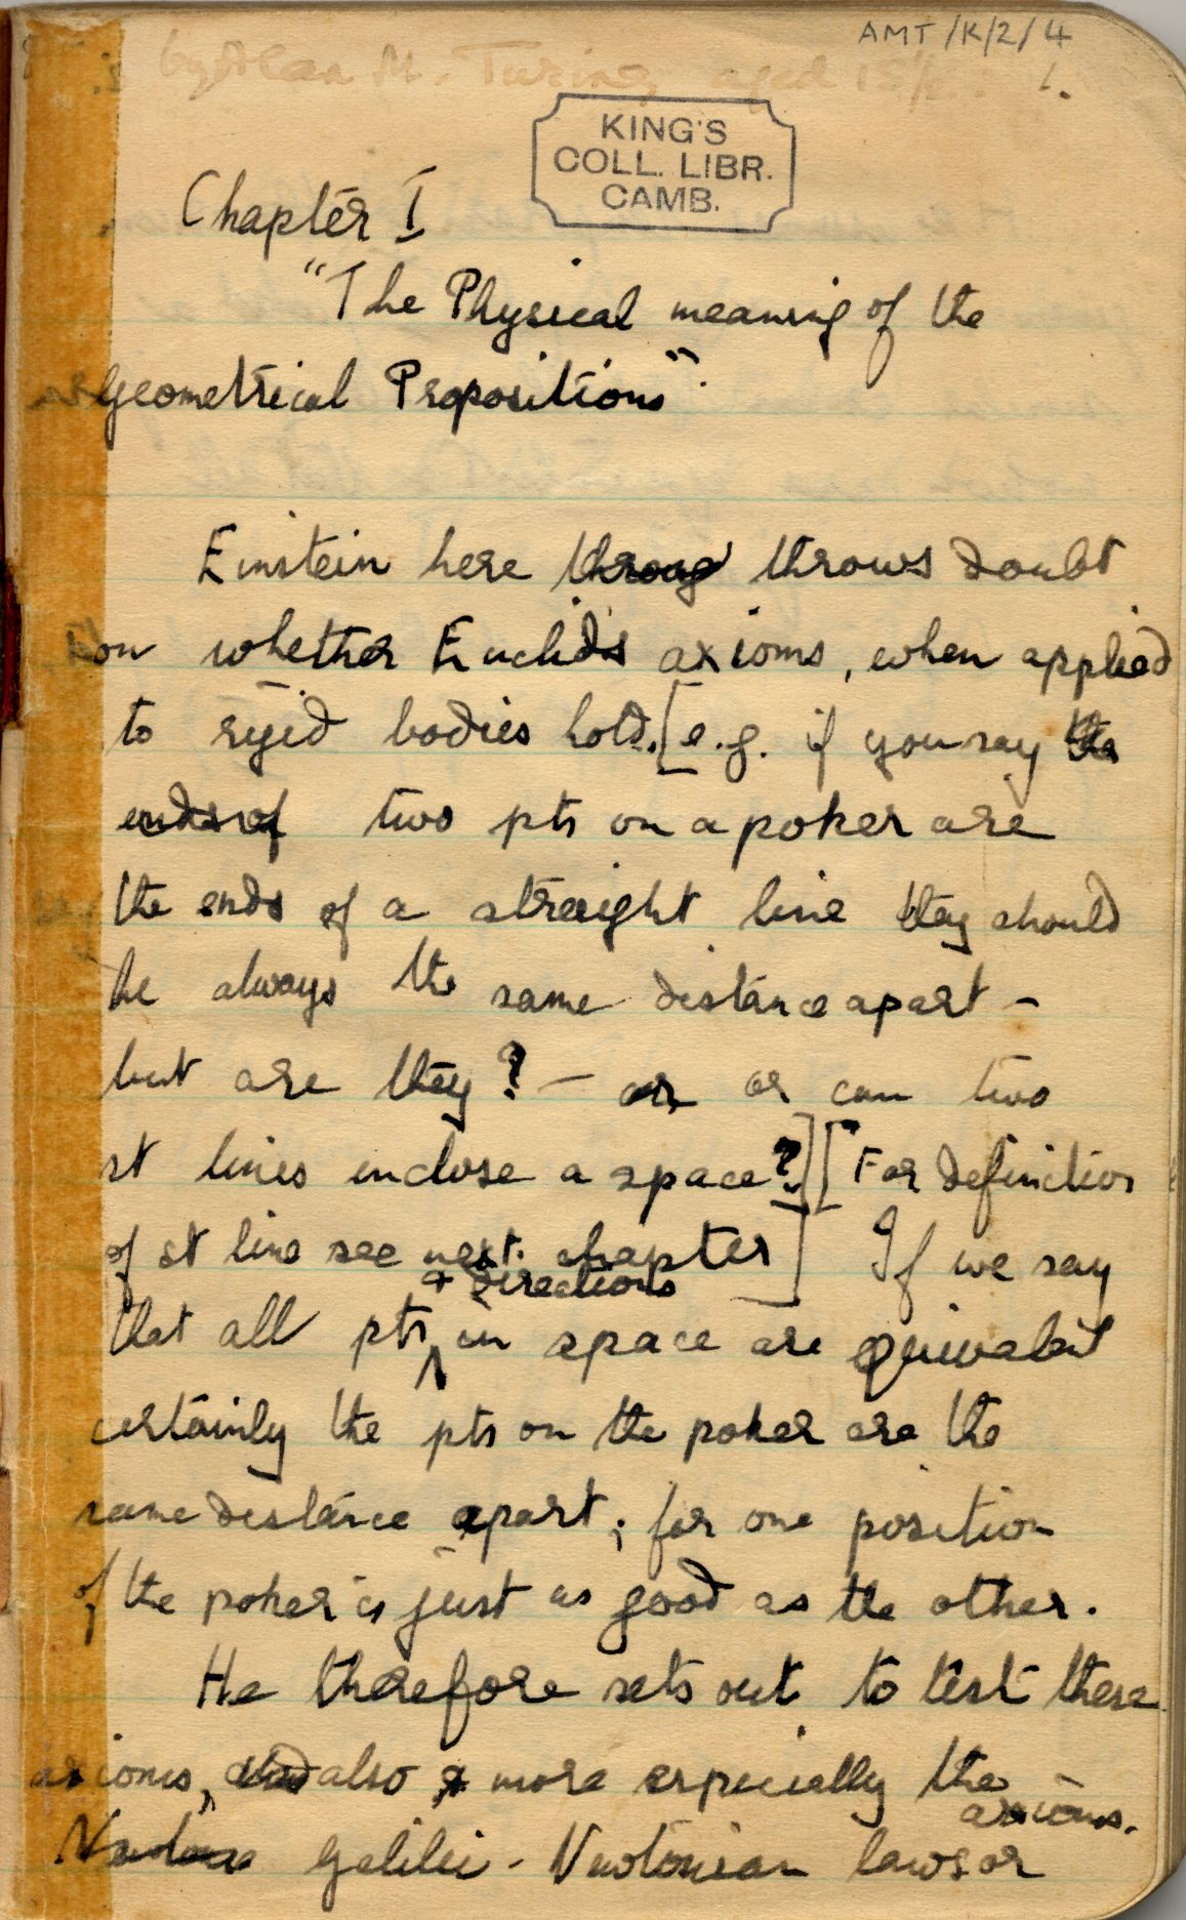 AMT/K/2/4
by Alan M. Turing aged 15½. 1.
KING'S
COLL. LIBR.
CAMB.
Chapter I
"The Physical meaning of the
Geometrical Propositions".
Einstein here throug throws doubt
on whether Euclid's axioms, when applied
to rigid bodies hold. [e.g. if you say the
ends of two pts on a poker are
the ends of a straight line they should
be always the same distance apart –
but are they? – or or can two
st lines enclose a space?] [For definition
of st line see next chapter] If we say
& directions
that all pts in space are equivalent
certainly the pts on the poker are the
same distance apart; for one position
of the poker is just as good as the other.
He therefore sets out to test these
axioms, and also & more especially the
axioms.
Newtone Galilei - Newtonian laws or